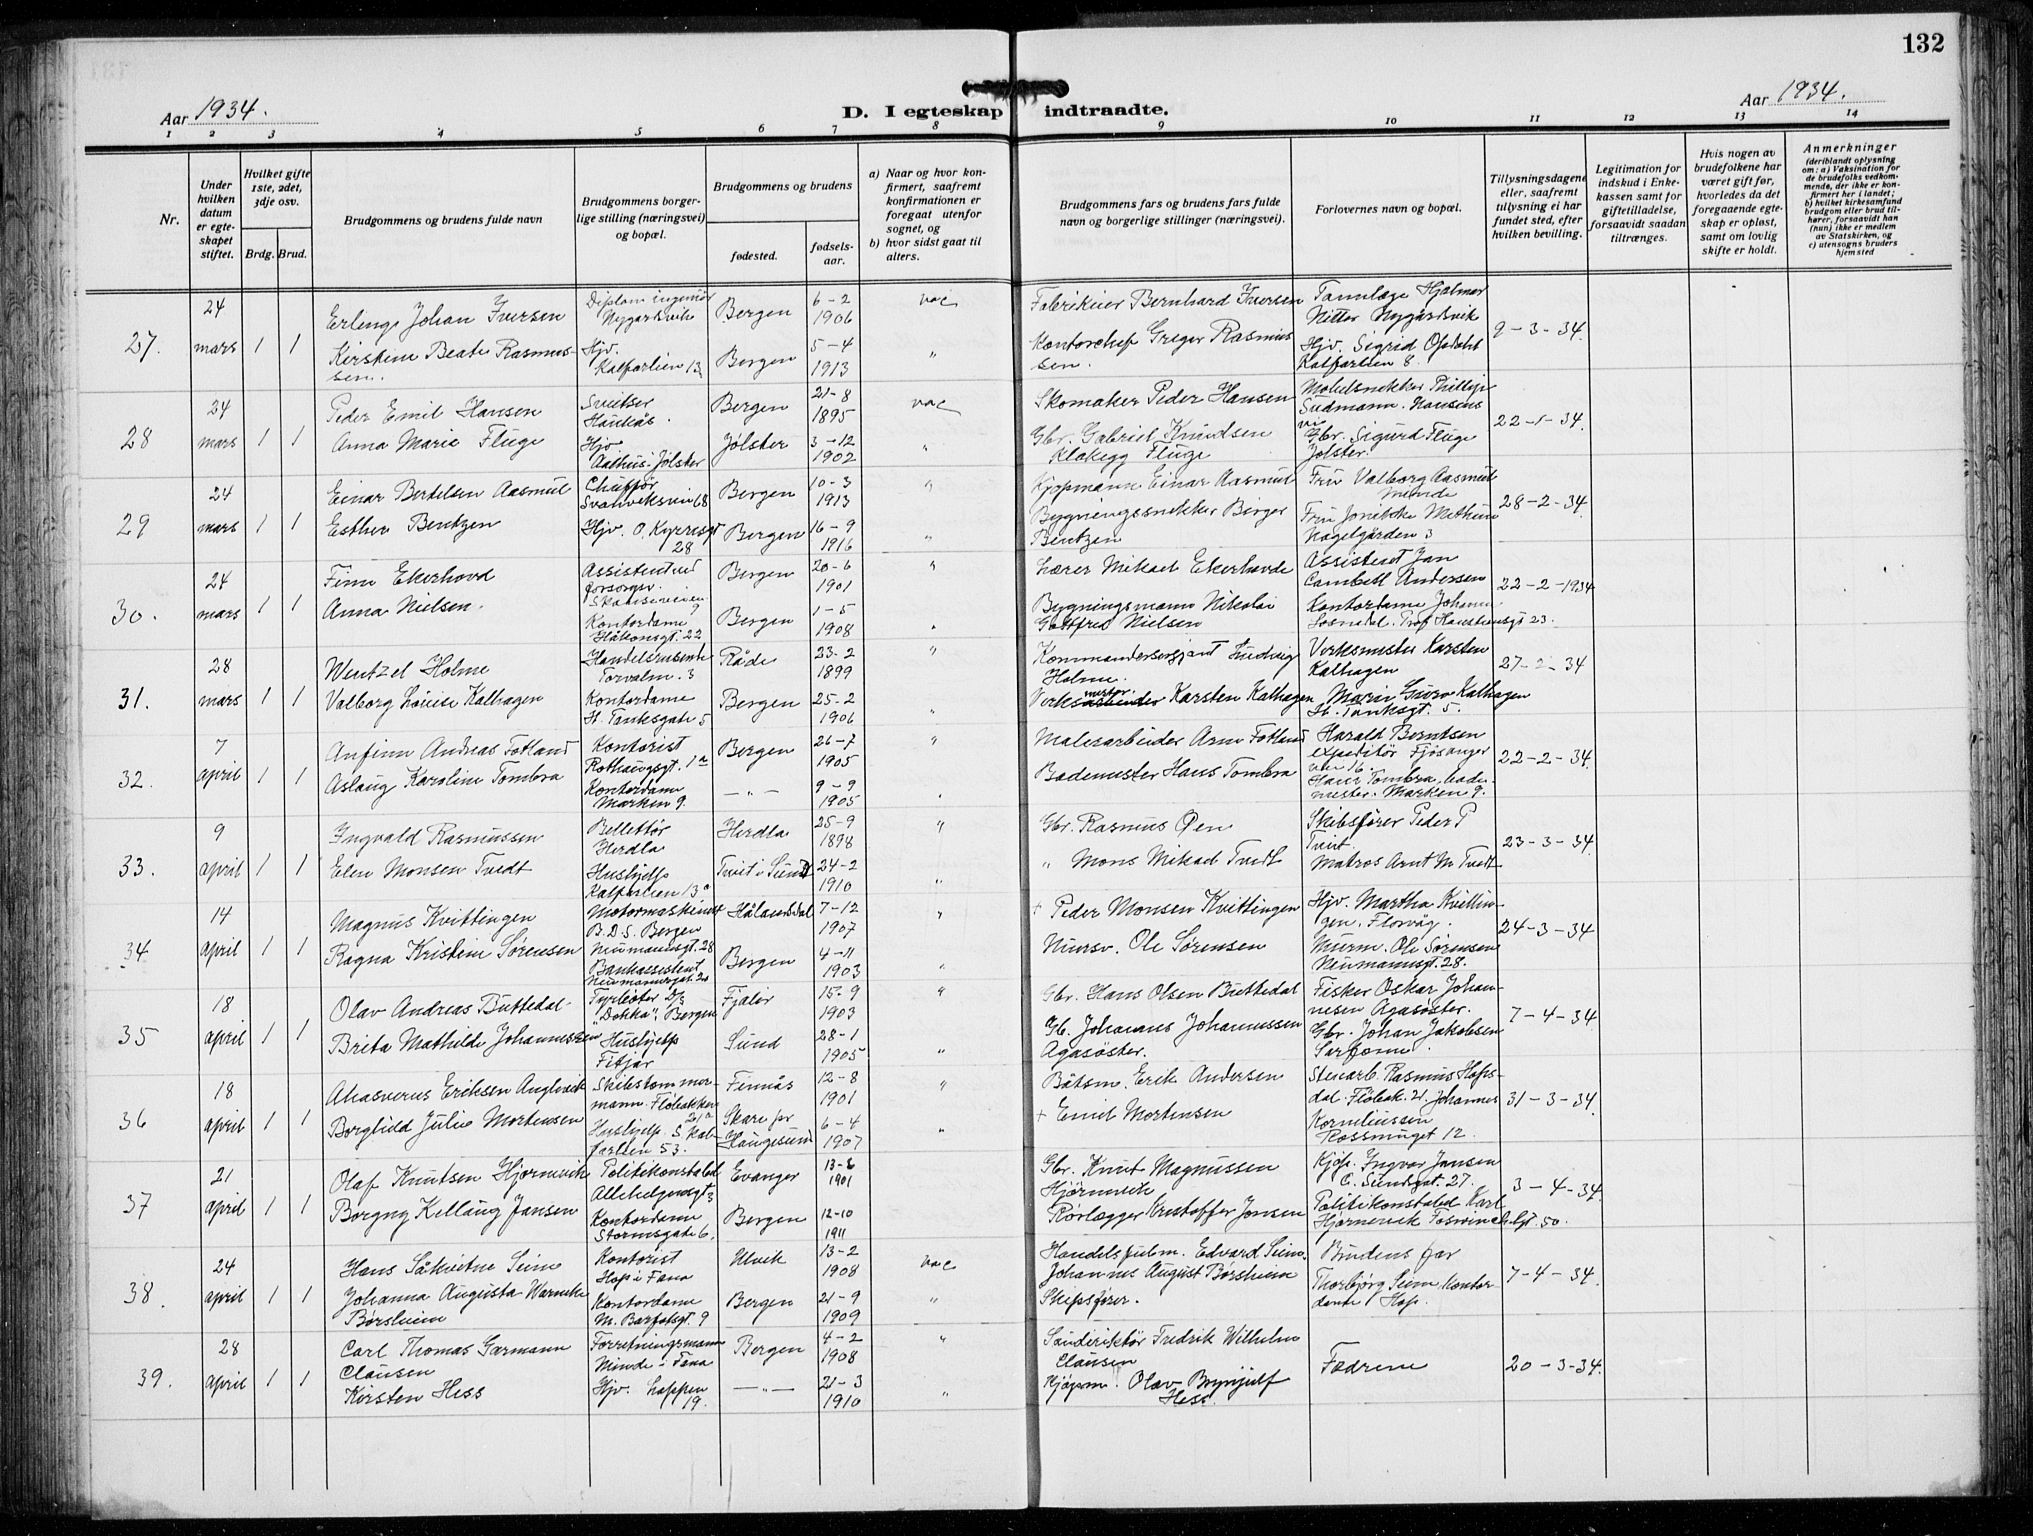 132
Aar 1934.
D. I egteskap indtraadte.
Aar 1934.
1 2 3 4 5 6 7 8 9 10 11 12 13 14
Nr.
Under hvilken datum er egte-skapet stiftet.
Hvilket gifte 1ste, 2det, 3dje osv.
Brdg. Brud.
Brudgommens og brudens fulde navn
Brudgommens borger-lige stilling (næringsvei) og bopæl.
Brudgommens og brudens
fødested.
fødsels-aar.
a) Naar og hvor kon-firmert, saafremt konfirmationen er foregaat utenfor sognet, og
b) hvor sidst gaat til alters.
Brudgommens fars og brudens fars fulde navn og borgerlige stillinger (næringsvei).
Forlovernes navn og bopæl.
Tillysningsdagene eller, saafremt tillysning ei har fundet sted, efter hvilken bevilling.
Legitimation for indskud i Enke-kassen samt for giftetilladelse, forsaavidt saadan tiltrænges.
Hvis nogen av brudefolkene har været gift før, hvorledes da det foregaaende egte-skap er opløst, samt om lovlig skifte er holdt.
Anmerkninger
(deriblandt oplysning om: a) Vaksination for de brudefolks vedkom-mende, der ikke er kon-firmert her i landet; b) hvilket kirkesamfund brudgom eller brud til-hører, forsaavidt han (hun) ikke er medlem av Statskirken, og c) utensogns bruders hjemsted
27. 24 mars 1 1
Erling Johan Iversen
Diplom ingeniør Nygårdsvik
Bergen 6-2 1906 vac
Fabrikeier Bernhard Iversen
Tannlæge Hjalmar Nitter Nygårdsvik
9-3-34.
Kirsten Beate Rasmus-sen.
Hjv. Kalfarlien 13
Bergen 5-4 1913 "
Kontorchef Greger Rasmus sen.
Hjv. Sigrid Opdahl Kalfarlien 8.
28 24 mars 1 1
Peder Emil Hansen
Sveitser Haukås.
Bergen 21-8 1895 vac
Skomaker Peder Hansen
22-1-34.
Anna Marie Fluge
Hjv Aalhus. Jølster
Jølster 3-12 1902 "
Gbr. Gabriel Knudsen Klakegg Fluge
Gbr. Sigurd Fluge Jølster.
29 24 mars 1 1
Einar Bertelsen Aasmul
Svanviksvei 68
Bergen 10-3 1913 "
Kjøpmann Einar Aasmul
Fru Valborg Aasmul Minde
28-2-34.
Esther Bentzen
Hjv. O. Kyrresgt 28
Bergen 16-9 1916 "
Bygningssnekker Birger Bentzen
Nagelgården 3
30. 24 mars 1 1
Finn Ekerhovd
Assistent ved forsorgsv
Bergen 20-6 1901 "
Lærer Mikael Ekerhovde
Assistent Jan Cambell Andersen
22-2-1934
Anna Nielsen.
Kontordame Håkonsgt. 22
Bergen 1-5 1908 "
Bygningsmann Nikolai Gottfred Nielsen
Kontordame
31. 28 mars 1 1
Wentzel Holme
Torvalm. 3
Råde 23-2 1899 "
Kommandersersjant Ludvig Holme.
Verksmester Karsten Kalhagen
27-2-34
Valborg Louise Kalhagen
Kontordame H. Tanksgate 5
Bergen 25-2 1906 "
Verksmester Karsten Kalhagen
Marie Kalhagen H. Tanksgt. 5.
32. 7 april 1 1
Anfinn Andreas Fotland
Kontorist Rothaugsgt. 1a
Bergen 26-7 1905 "
Malerarbeider Arne Fotland
Harald Berntsen expeditør Fjøsanger vei 16.
22-2-34.
Aslaug Karoline Tombra
Kontordame Marken 9.
—"— 9-9 1905 "
Bademester Hans Tombra
Hans Tombra, bade-mester. Marken 9.
33. 9 april 1 1
Ingvald Rasmussen
Herdla
Herdla 25-9 1898 "
Gbr. Rasmus Øen
Skibsfører Peder P Tveit.
23-3-34.
Elen Monsen Tvedt
Hushjelp Kalfarlien 13a
Tveit i Sund 24-2 1910 "
" Mons Mikael Tvedt
Matros Arnt M. Tvedt
34 14 april 1 1
Magnus Kvittingen
Motormaskinist B.D.S. Bergen
Hålandsdal 7-12 1907 "
+ Peder Monsen Kvittingen
Hjv. Martha Kvittin-gen. Florvåg.
24-3-34
Ragna Kristine Sørensen
Neumannsgt. 28 Bankassistent
Bergen 4-11 1903 "
Murm. Ole Sørensen
Murm. Ole Sørensen Neumannsgt. 28.
35 18 april 1 1
Olav Andreas Buttedal
Fyrbøter D/S "Dokka", Bergen
Fjaler 15-9 1903 "
Gbr. Hans Olsen Buttedal
Fisker Oskar Johan-nesen Agasøster.
7-4-34
Brita Mathilde Johannessen
Hushjelp Fitjar
Sund 28-1 1905 "
Gb. Johannes Johannessen Agasøster.
Gbr. Johan Jakobsen
36 18 april 1 1
Ahasverus Eriksen Anglevik
Skibstømmer-mann. Fløbakken 21a
Finnås 12-8 1901 "
Båtsm. Erik Andersen
Stenarb. Rasmus Hops-dal. Fløbak. 21.
31-3-34.
Borghild Julie Mortensen
Hushjelp. S. Kal-farlien 53.
Skåre før Haugesund 6-4 1907 "
+ Emil Mortensen
Johannes Korneliussen Rosesmuget 12.
37 21 april 1 1
Olaf Knutsen Hjørnevik
Politikonstabel Allehelgensgt 3
Evanger 13-6 1901
Gbr. Knut Magnussen Hjørnevik
Kjøp. Ingvar Jansen C. Sundsgt. 27.
3-4-34.
Borgny Kellaug Jansen
Kontordame Stormsgate 6.
Bergen 12-10 1911
Rørlegger Kristoffer Jansen
Politikonstabel Karl Hjørnevik Foswinckelsgt. 50.
38. 24 april 1 1
Hans Såkvitne Seim
Kontorist Hop i Fana
Ulvik 13-2 1908 vac
Handelsfulm. Edvard Seim.
Brudens far
7-4-34.
Johanna Augusta Warncke Børsheim
Kontordame M. Barfotsgt. 9
Bergen 21-9 1909 "
Johannes August Børsheim Skipsfører.
Thorbjørg Seim, kontor-dame Hop.
39. 28 april 1 1
Carl Thomas Garmann Clausen
Forretningsmann Minde i Fana
Bergen 4-2 1908 "
Fredrik Wilhelm Clausen
Fædrene
20-3-34.
Kirsten Hess
Hjv. Loppen 19.
—"— 21-3 1910 "
Kjøpm. Olav Brynjulf Hess.